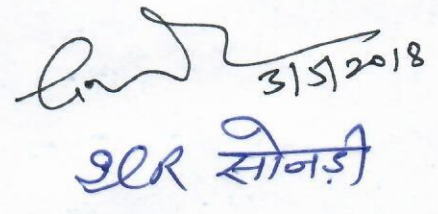 3/5/2018
SCR सोनड़ी